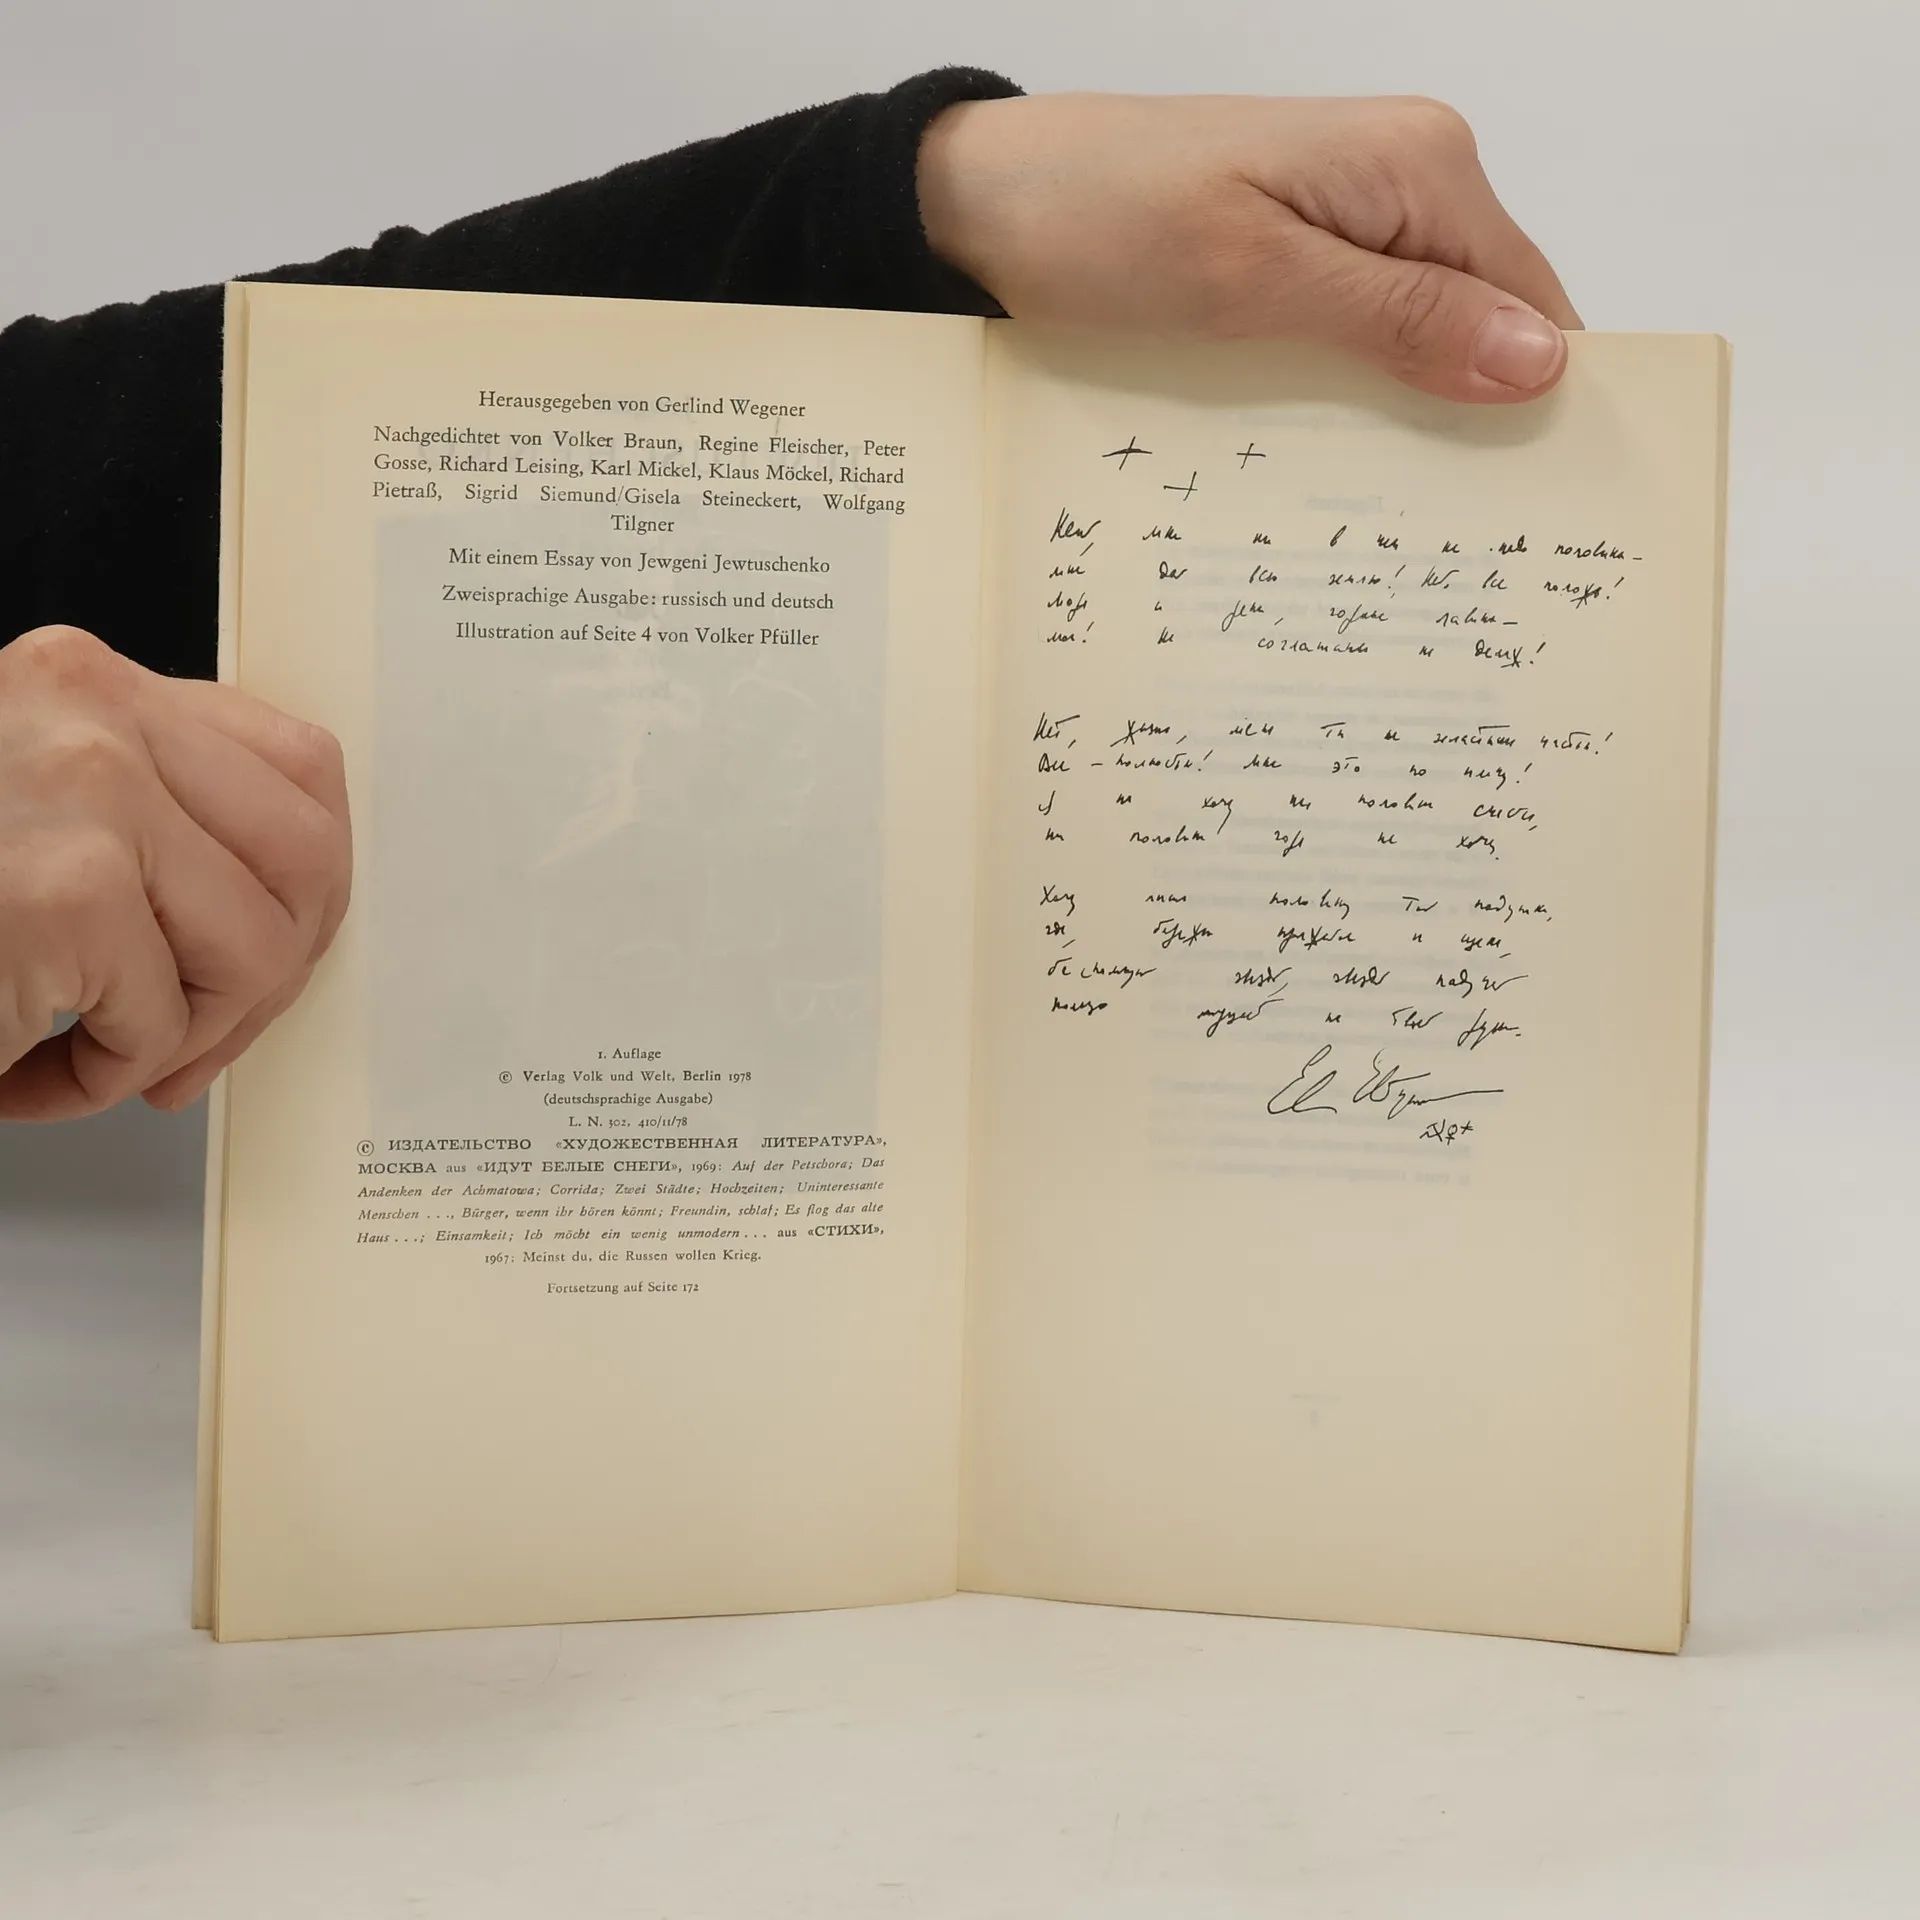 Herausgegeben von Gerlind Wegener
Nachgedichtet von Volker Braun, Regine Fleischer, Peter
Gosse, Richard Leising, Karl Mickel, Klaus Möckel, Richard
Pietraß, Sigrid Siemund/Gisela Steineckert, Wolfgang
Tilgner
Mit einem Essay von Jewgeni Jewtuschenko
Zweisprachige Ausgabe: russisch und deutsch
Illustration auf Seite 4 von Volker Pfüller
1. Auflage
© Verlag Volk und Welt, Berlin 1978
(deutschsprachige Ausgabe)
L. N. 302, 410/11/78
© ИЗДАТЕЛЬСТВО «ХУДОЖЕСТВЕННАЯ ЛИТЕРАТУРА»,
МОСКВА aus «ИДУТ БЕЛЫЕ СНЕГИ», 1969: Auf der Petschora; Das
Andenken der Achmatowa; Corrida; Zwei Städte; Hochzeiten; Uninteressante
Menschen . . ., Bürger, wenn ihr hören könnt; Freundin, schlaf; Es flog das alte
Haus . . .; Einsamkeit; Ich möcht ein wenig unmodern . . . aus «СТИХИ»,
1967: Meinst du, die Russen wollen Krieg.
Fortsetzung auf Seite 172
Нет, мне ни в чем не надо половины —
мне дай всю землю! Нет, все положь!
Моря и реки, горные лавины —
мои! Не соглашаюсь на дележ!
Нет, жизнь, меня ты не заластишь частью!
Все — полностью! Мне это по плечу!
Я не хочу ни половины счастья,
ни половины горя не хочу.
Хочу лишь половину той подушки,
где, бережно прижатое к щеке,
беспомощной звездой, звездой падучей
кольцо на твоей руке.